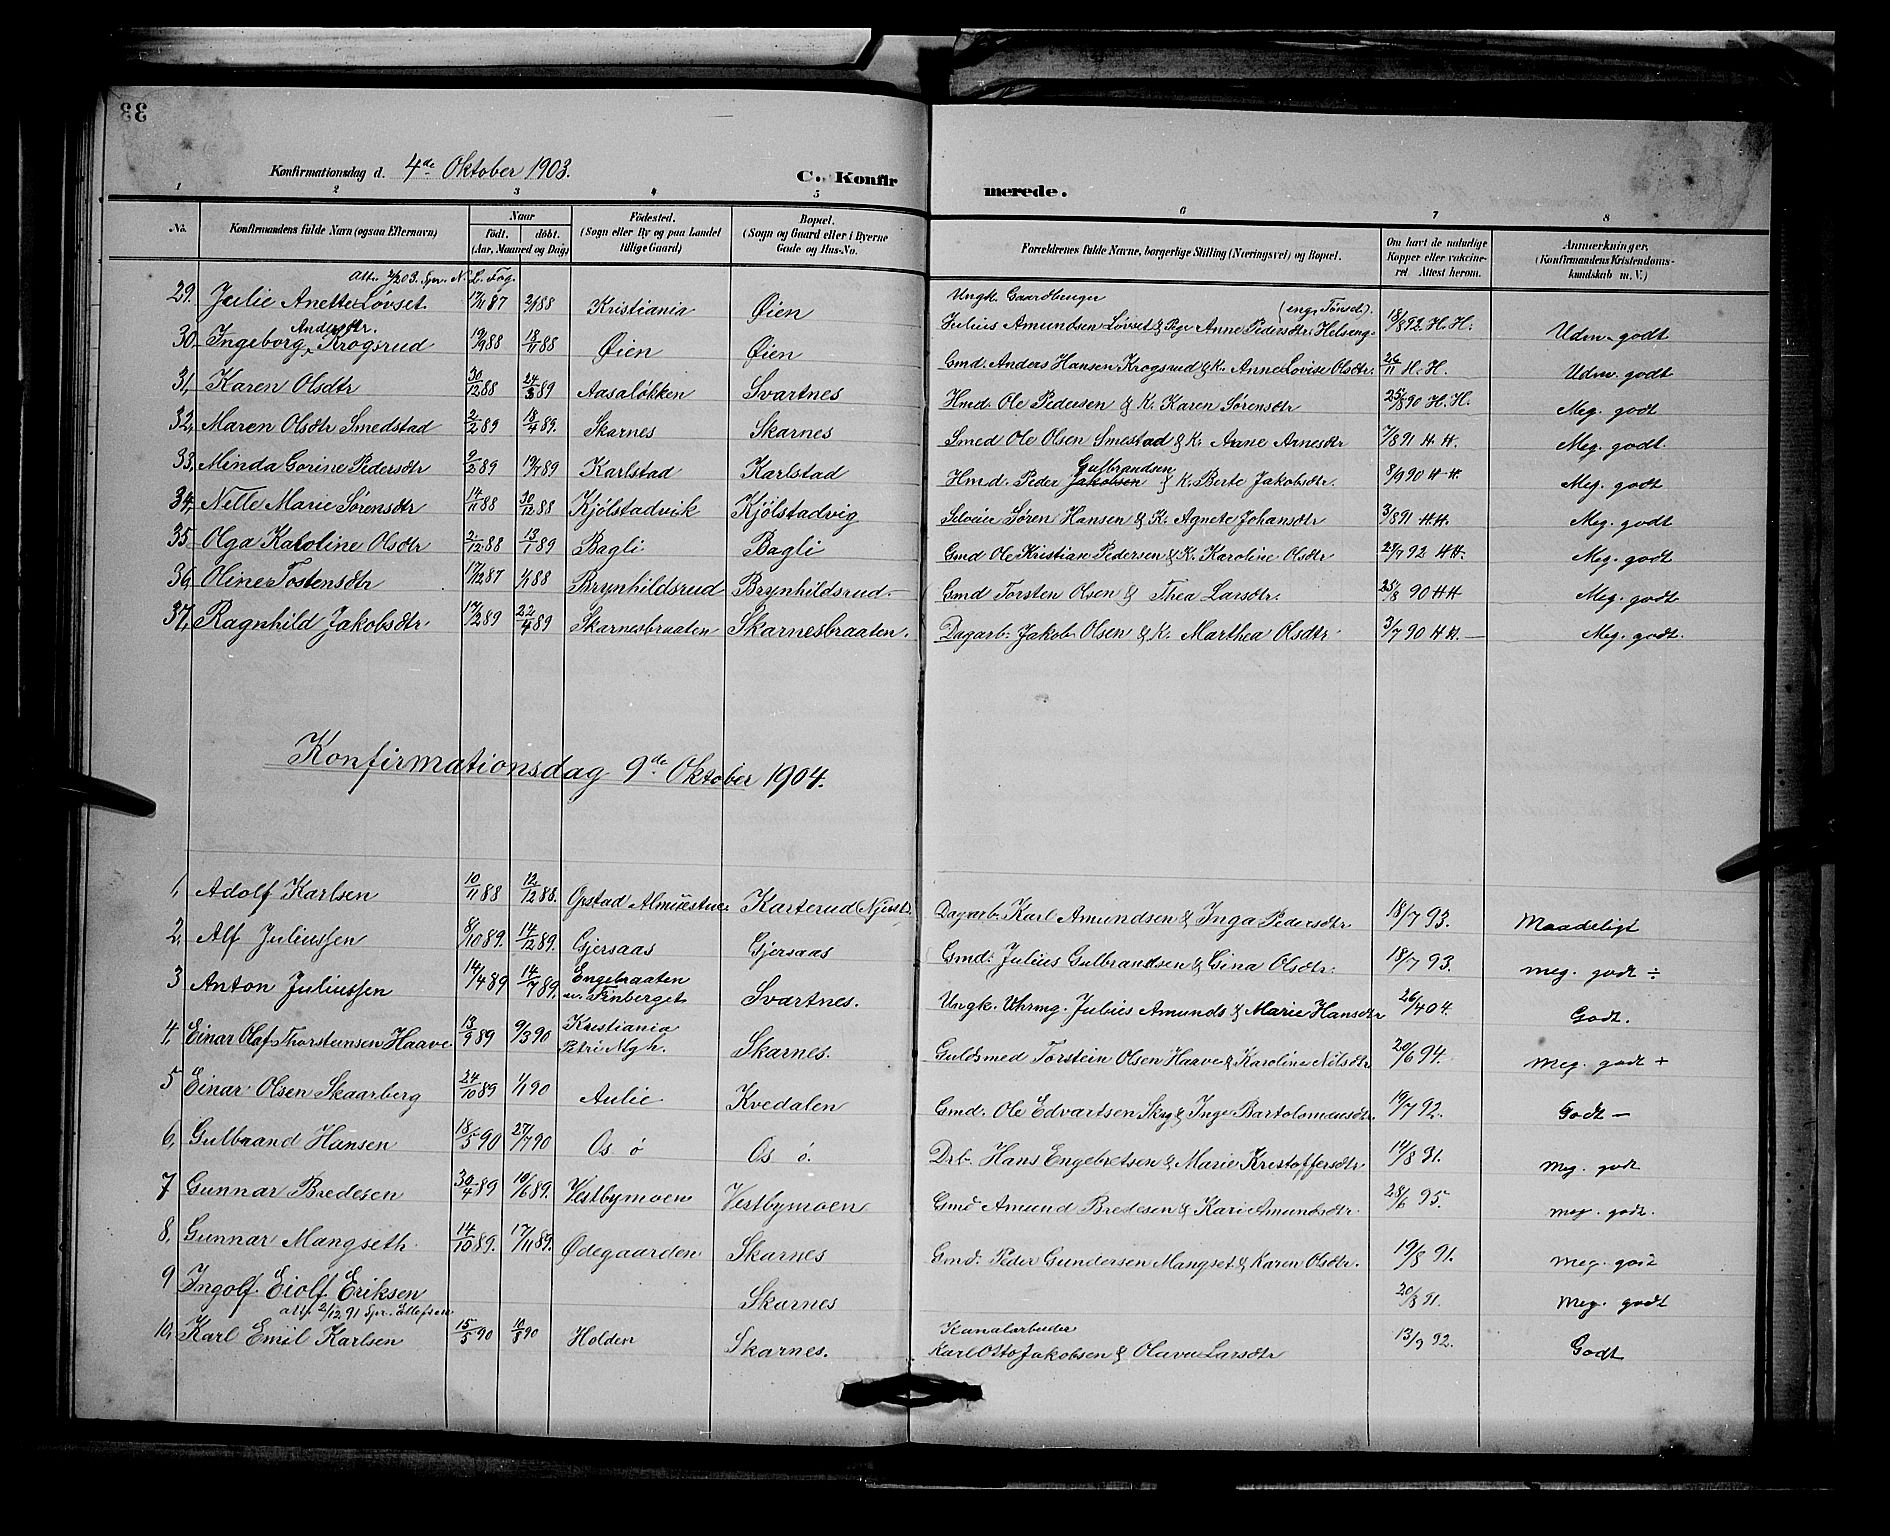 33
Konfirmationsdag d. 4de Oktober 1903.
C. Konfirmerede.
1 2 3 4 5 6 7 8
No. Konfirmandens fulde Navn (ogsaa Efternavn) Naar født. døbt. (Aar, Maaned og Dag) Fødested. (Sogn eller By og paa Landet tillige Gaard) Bopæl. (Sogn og Gaard eller i Byerne Gade og Hus-No. Forældrenes fulde Navne, borgerlige Stilling (Næringsvei) og Bopæl. Om havt de naturlige Kopper eller vaccineret Attest herom. Anmærkninger. (Konfirmandens Kristendomskundskab m. V.)
29. Julie Anette Løvset 17/11 87 2/1 88 Kristiania Øien Ungk. Gaardbruger Julius Amundsen Løvset & Pige Anne Pedersdtr. Helseng (eng. Tønset). 18/8 92 H. H. Udm. godt
30. Ingeborg Andersdtr. Krogsrud 19/9 88 18/11 88 Øien Øien Gmd. Anders Hansen Krogsrud & K. Anne Lovise Olsdtr. 26/11 H. H. Udm. godt
31, Karen Olsdtr 30/12 88 24/3 89 Aasaløkken Svartnes Hmd. Ole Pedersen & K. Karen Sørensdtr 25/8 90 H. H. Meg. godt
32, Maren Olsdtr Smedstad 2/2 89 18/4 89. Skarnes Skarnes Smed Ole Olsen Smestad & K. Anne Arnesdtr 7/8 91 H. H. Meg. godt
33, Minda Gorine Pedersdtr 9/2 89 19/4 89 Karlstad Karlstad Hmd. Peder Jakobsen Gulbrandsen & K. Berte Jakobsdtr. 8/9 90 H H. Meg. godt
34, Nelle Marie Sørensdtr 14/11 88 30/12 88 Kjølstadvik Kjølstadvig Søren Hansen & K. Agnete Johansdtr 3/8 91 H.H. Meg. godt
35 Olga Karoline Olsdtr 2/12 88 13/1 89 Bagli Bagli Gmd Ole Kristian Pedersen & K. Karoline Olsdtr 27/7 92 HH. Meg. godt
36, Oline Tostensdtr 17/12 87 1/1 88 Brynhildsrud Brynhildsrud. Gmd Torsten Olsen & Thea Larsdtr. 25/8 90 HH Meg. godt
37, Ragnhild Jakobsdtr 17/2 89 22/4 89 Skarnesbraaten Skarnesbraaten. Dagarb. Jakob Olsen & K. Marthea Olsdtr 3/7 90 H H. Meg. godt.
Konfirmationsdag 9de Oktober 1904.
1, Adolf Karlsen 10/11 88 12/12 88. Opstad Karterud Dagarb. Karl Amundsen & Inga Pedersdtr 18/7 93. Maadeligt
2, Alf Juliussen 8/10 89. 14/12 89. Gjersaas Gjersaas Gmd. Julius Gulbrandsen & Gina Olsdtr. 18/7 93. meg. godt ÷
3 Anton Juliussen 14/4 89 14/7 89. Engebraaten u. Finberget Svartnes. Ungk. Uhrmg. Julius Amunds & Marie Hansdtr 26/4 04. Godt.
4, Einar Olaf Thorsteinsen Haave 13/9 89 9/3 90 Kristiania Petri Mgh. Skarnes. Guldsmed Torstein Olsen Haave & Karoline Nilsdtr 20/6 94. Meg. godt +
5 Einar Olsen Skaarberg 24/10 89 1/1 90 Aulie Kvedalen Gmd. Ole Edvartsen & Inge Bartolomausdtr. 19/7 92. Godt —
6, Gulbrand Hansen 18/5 90 27/7 90 Os ø Os ø. Drb. Hans Engebretsen & Marie Kristoffersdtr 14/8 91. Meg. godt
7 Gunnar Bredesen 30/4 89 10/6 89. Vestbymoen Vestbymoen Gmd Amund Bredesen & Kari Amundsdtr. 28/6 95. meg. godt.
8, Gunnar Mangseth 14/10 89. 17/11 89. Ødegaarden Skarnes Gmd. Peder Gundersen Mangset & Karen Olsdtr. 19/8 91. Meg. godt
9 Ingolf Eiolf Eriksen Skarnes 20/8 91. Meg. godt
10, Karl Emil Karlsen 15/5 90 10/8 90 Holden Skarnes. Kanalarbeider Karl Otto Jakobsen & Olava Larsdtr 13/9 92. Godt